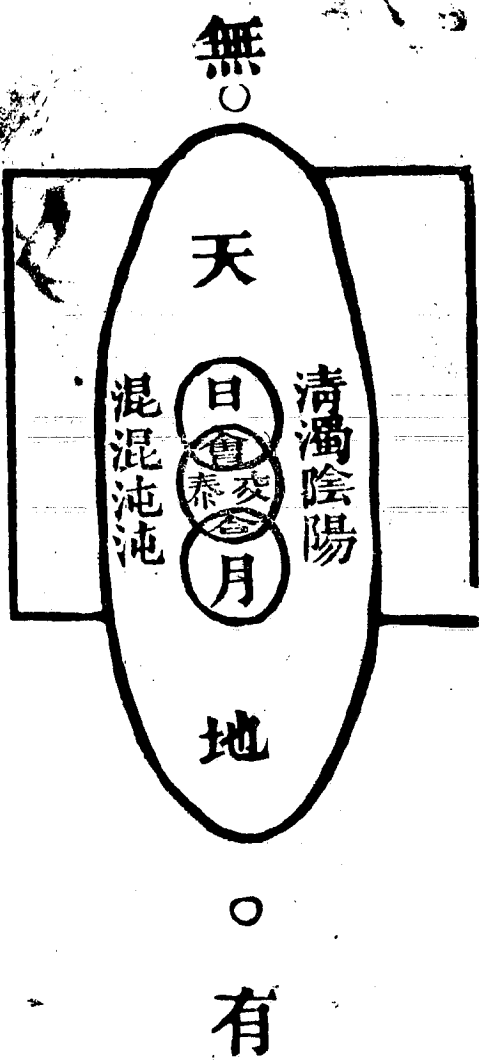 無
天
清濁陰陽
日
會
交泰
合
月
混混沌沌
地
有